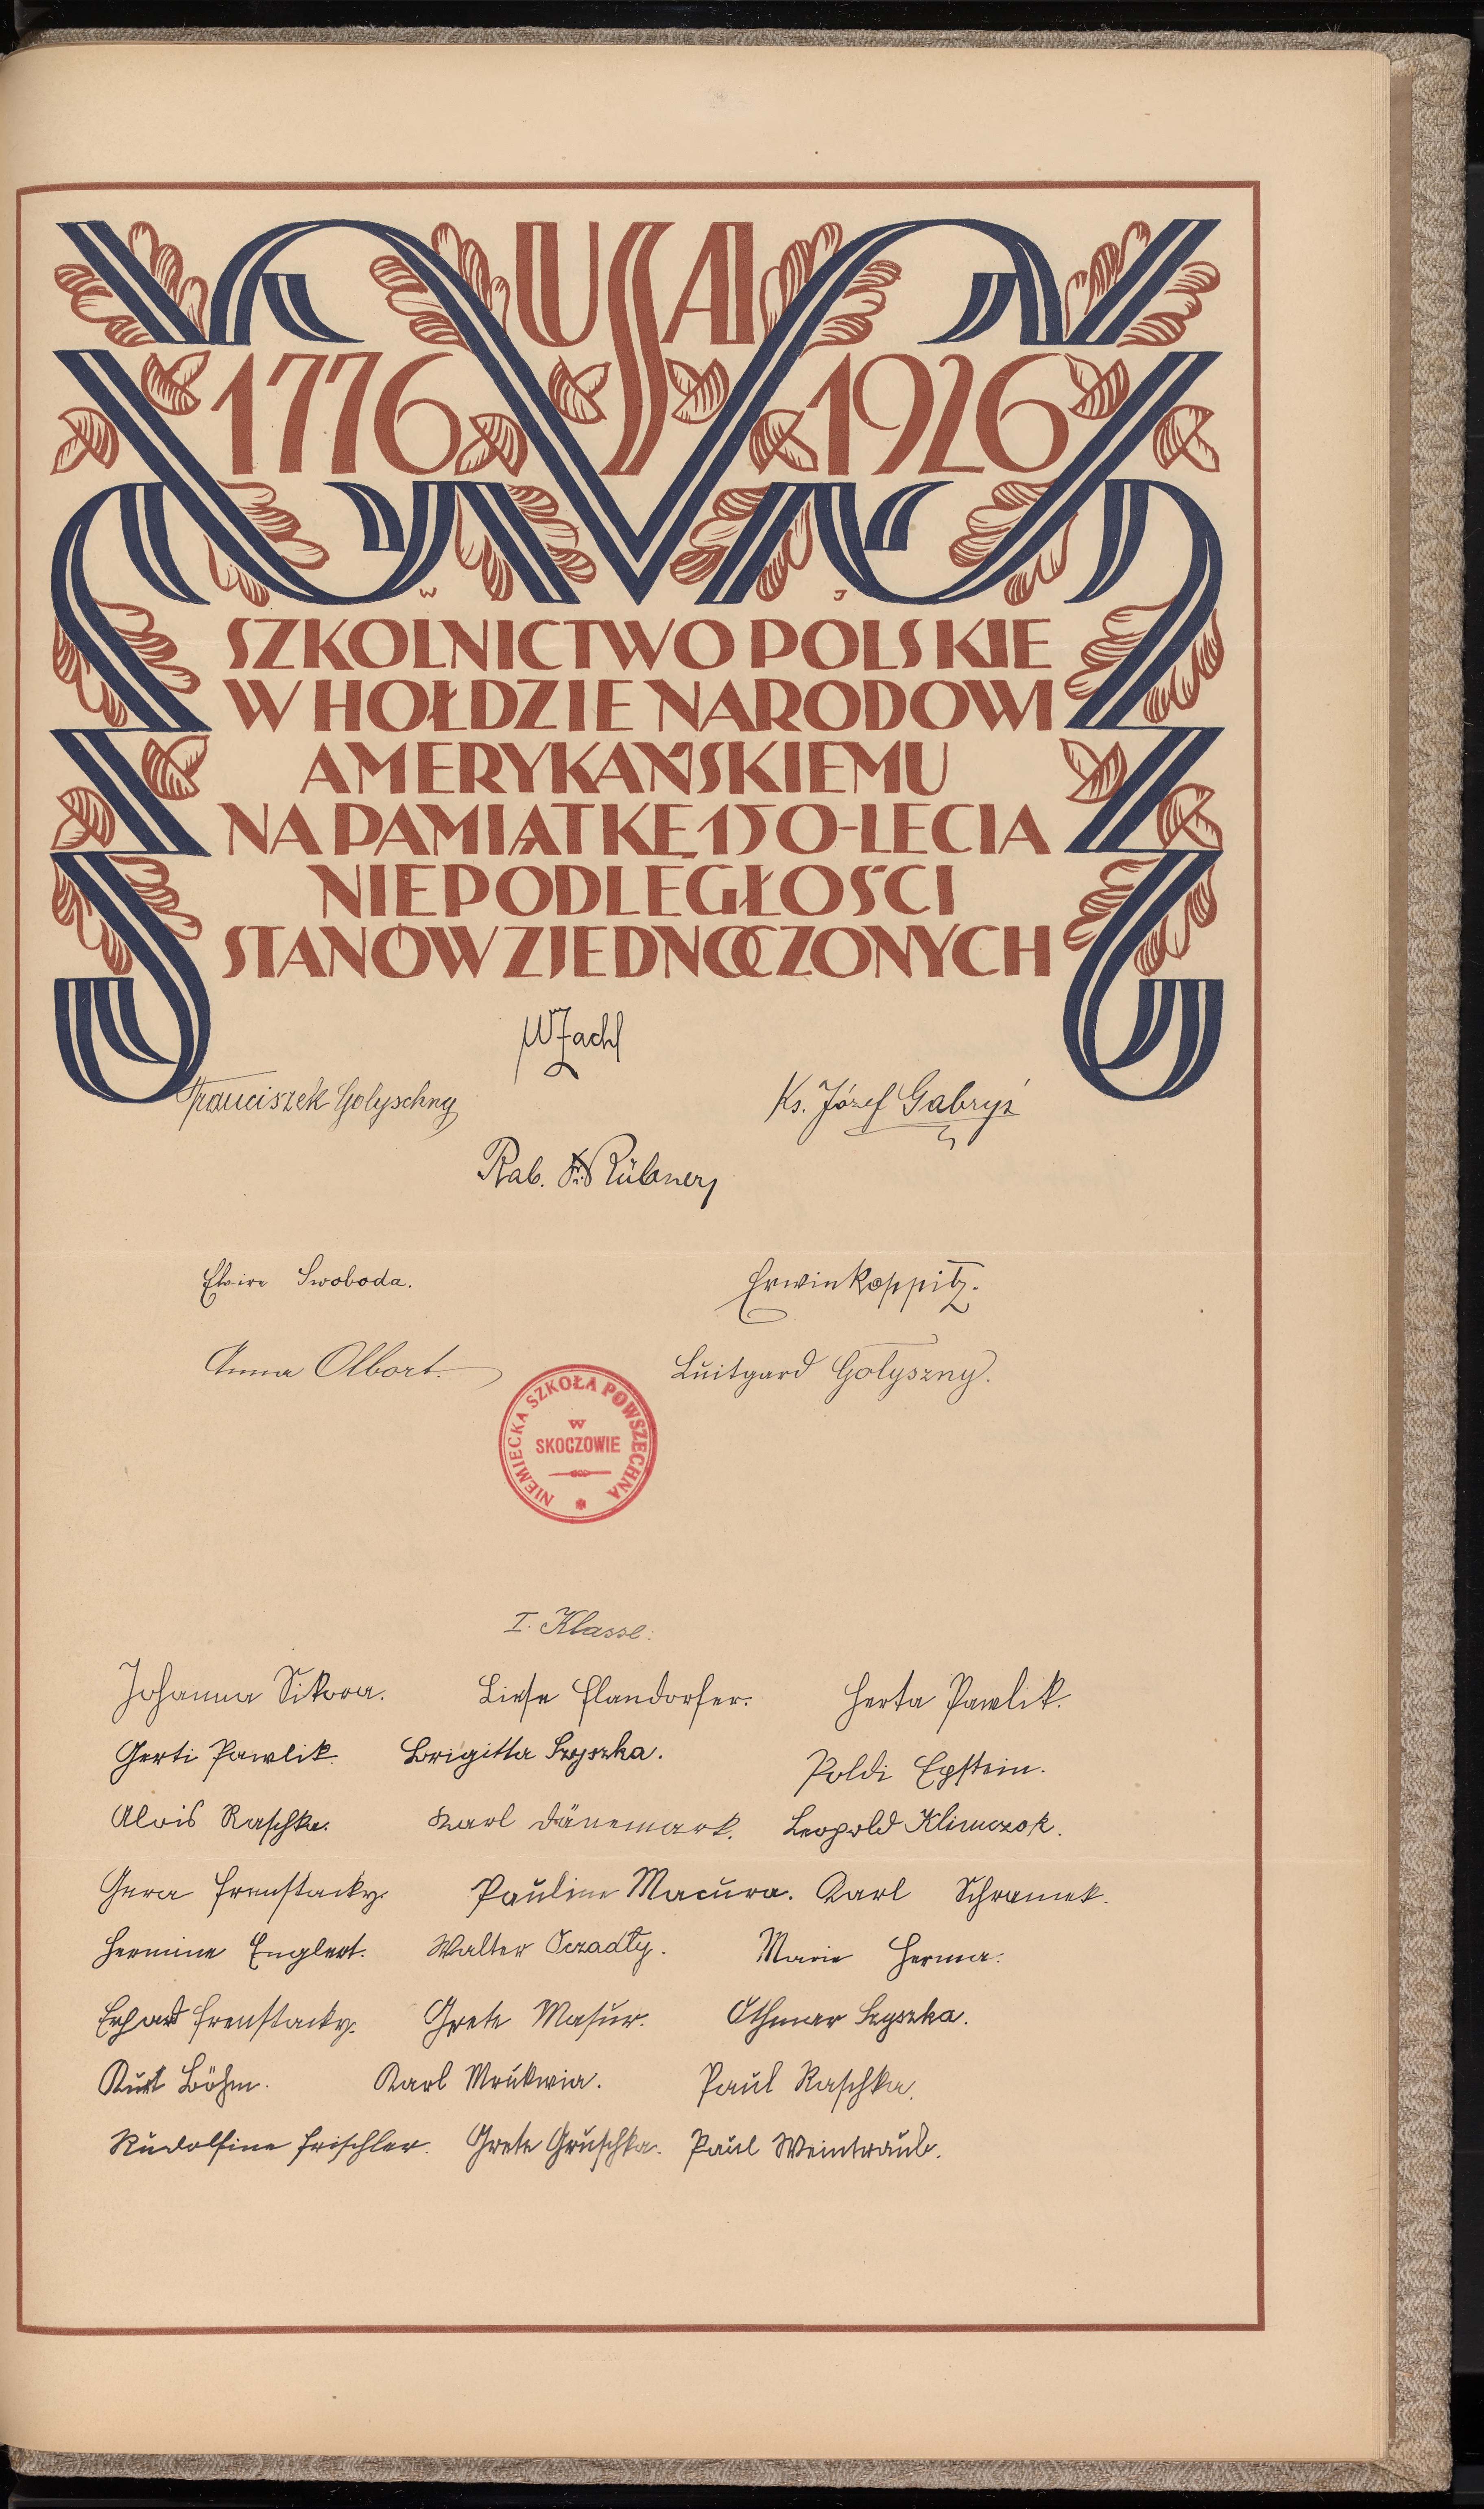 USA
1776 1926
W J
SZKOLNICTWO POLSKIE
W HOŁDZIE NARODOWI
AMERYKAŃSKIEMU
NA PAMIĄTKĘ 150-LECIA
NIEPODLEGŁOŚCI
STANÓW ZJEDNOCZONYCH
Franciszek Golyschny Ks. Józef Gabryś
Rab. Rübner
Elvire Swoboda. Erwin Koppitz.
Anna Olbort. Luitgard Gołyszny.
NIEMIECKA SZKOŁA POWSZECHNA
w
SKOCZOWIE
I. Klasse:
Johanna Sikora. Liese Flandorfer. Herta Pawlik.
Gerti Pawlik. Brigitta Szyszka. Poldi Epstein.
Alois Raschka. Karl Dänemark. Leopold Klimczok.
Gera Frenstacky. Pauline Macura. Karl Schramek.
Hermine Englert. Walter Oczadły. Marie Herma.
Erhard Frenstacky. Grete Masur. Othmar Szyszka.
Kurt Böhm. Karl Mrukwia. Paul Raschka.
Rudolfine Frischler. Grete Gruschka. Paul Weintraub.